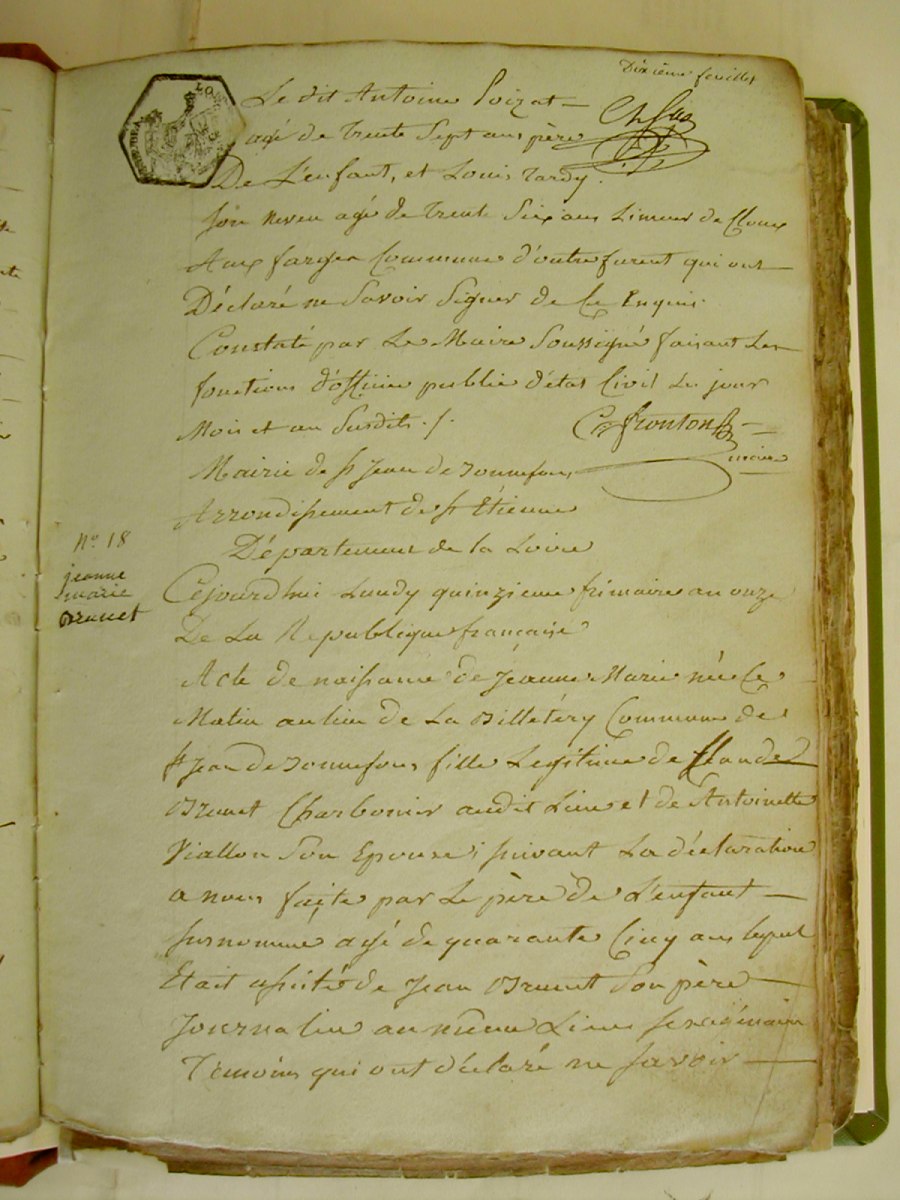 Dixième feuillet
Le dit Antoine Poizat
agé de trente Sept ans père
De L'enfant, et Louis Tardy.
Son neveu agé de trente Six ans Limeur de Cloux
Aux farges Commune d'outrefurent qui ont
Déclaré ne Savoir Signer de Ce Enquis.
Constaté par Le Maire Soussigné faisant Les
fonctions d'officier public d'état Civil Les jour
Mois et an Susdits ./.
Frontony
maire
Mairie de St Jean de Bonnefons
Arrondissement de St Etienne
Département de la Loire
No. 18
jeanne
marie
Brunet
Cejourd'hui Lundy quinzieme frimaire an onze
De La Republique française
Acte de naissance de Jeanne Marie née Ce
Matin au lieu de La Billetéry Commune de
St Jean de Bonnefons fille Legitime de Claude
Brunet Charbonier audit Lieu et de Antoinette
Viallon Son Epouse; suivant La déclaration
a nous faite par Le père de L'enfant
surnommé agé de quarante Cinq ans lequel
Etait assisté de Jean Brunet Son père
Journalier au même Lieu
Temoins qui ont déclaré ne savoir